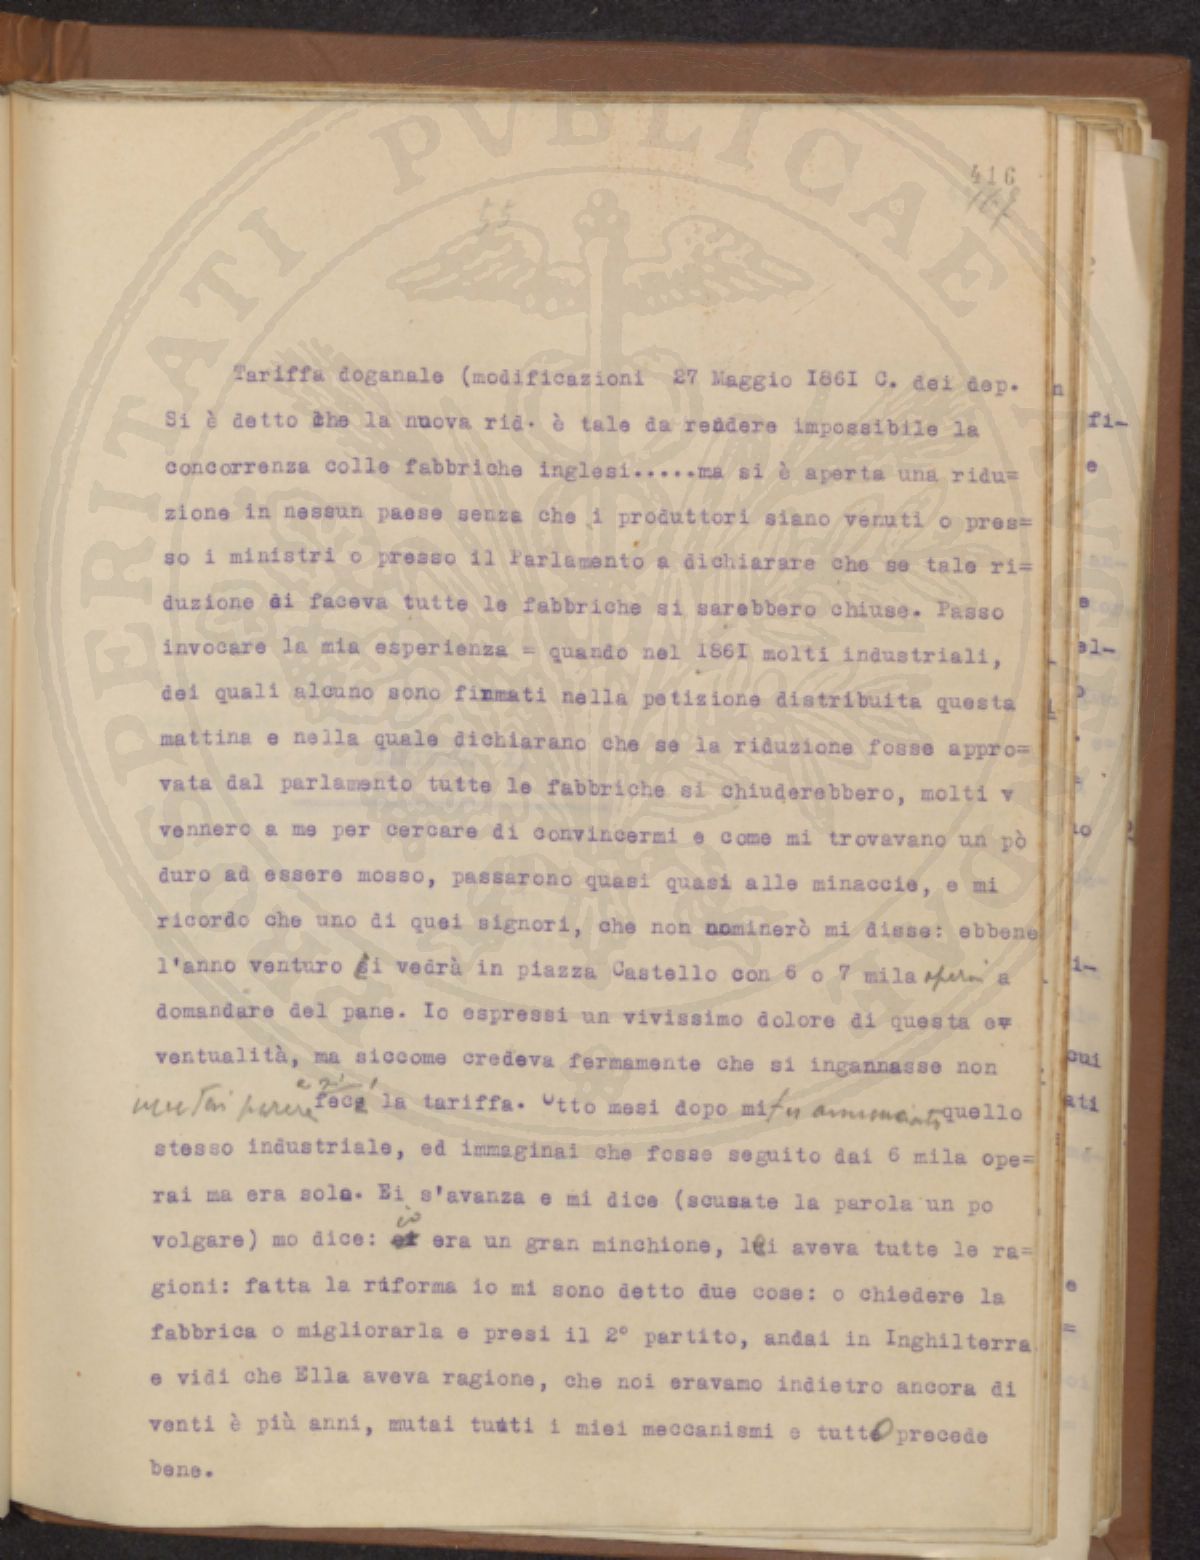 PERITATI PVBLICAE
416
167
55
Tariffa doganale (modificazioni 27 Maggio I86I C. dei dep.
Si è detto che la nuova rid. è tale da rendere impossibile la
concorrenza colle fabbriche inglesi.....ma si è aperta una ridu=
zione in nessun paese senza che i produttori siano venuti o pres=
so i ministri o presso il Parlamento a dichiarare che se tale ri=
duzione si faceva tutte le fabbriche si sarebbero chiuse. Passo
invocare la mia esperienza = quando nel I86I molti industriali,
dei quali alcuno sono firmati nella petizione distribuita questa
mattina e nella quale dichiarano che se la riduzione fosse appro=
vata dal parlamento tutte le fabbriche si chiuderebbero, molti v
vennero a me per cercare di convincermi e come mi trovavano un pò
duro ad essere mosso, passarono quasi quasi alle minaccie, e mi
ricordo che uno di quei signori, che non nominerò mi disse: ebbene
l'anno venturo ci vedrà in piazza Castello con 6 o 7 mila operai a
domandare del pane. Io espressi un vivissimo dolore di questa ev
ventualità, ma siccome credeva fermamente che si ingannasse non
mutai parere e si fece la tariffa. Otto mesi dopo mi fu annunciato quello
stesso industriale, ed immaginai che fosse seguito dai 6 mila ope=
rai ma era solo. Ei s'avanza e mi dice (scusate la parola un po
volgare) mo dice: io era un gran minchione, lei aveva tutte le ra=
gioni: fatta la riforma io mi sono detto due cose: o chiedere la
fabbrica o migliorarla e presi il 2° partito, andai in Inghilterra
e vidi che Ella aveva ragione, che noi eravamo indietro ancora di
venti è più anni, mutai tutti i miei meccanismi e tutto precede
bene.